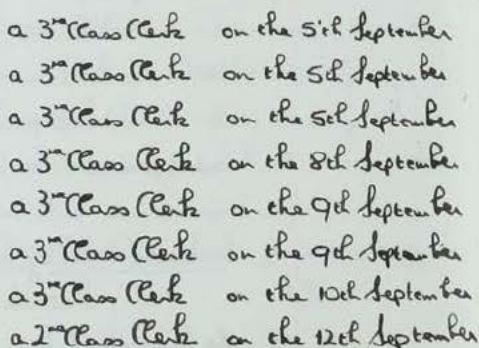 a 3rd Class Clerk on the 5th September
a 3rd Class Clerk on the 5th September
a 3rd Class Clerk on the 5th September
a 3rd Class Clerk on the 8th September
a 3rd Class Clerk on the 9th September
a 3rd Class Clerk on the 9th September
a 3rd Class Clerk on the 10th September
a 2nd Class Clerk on the 12th September